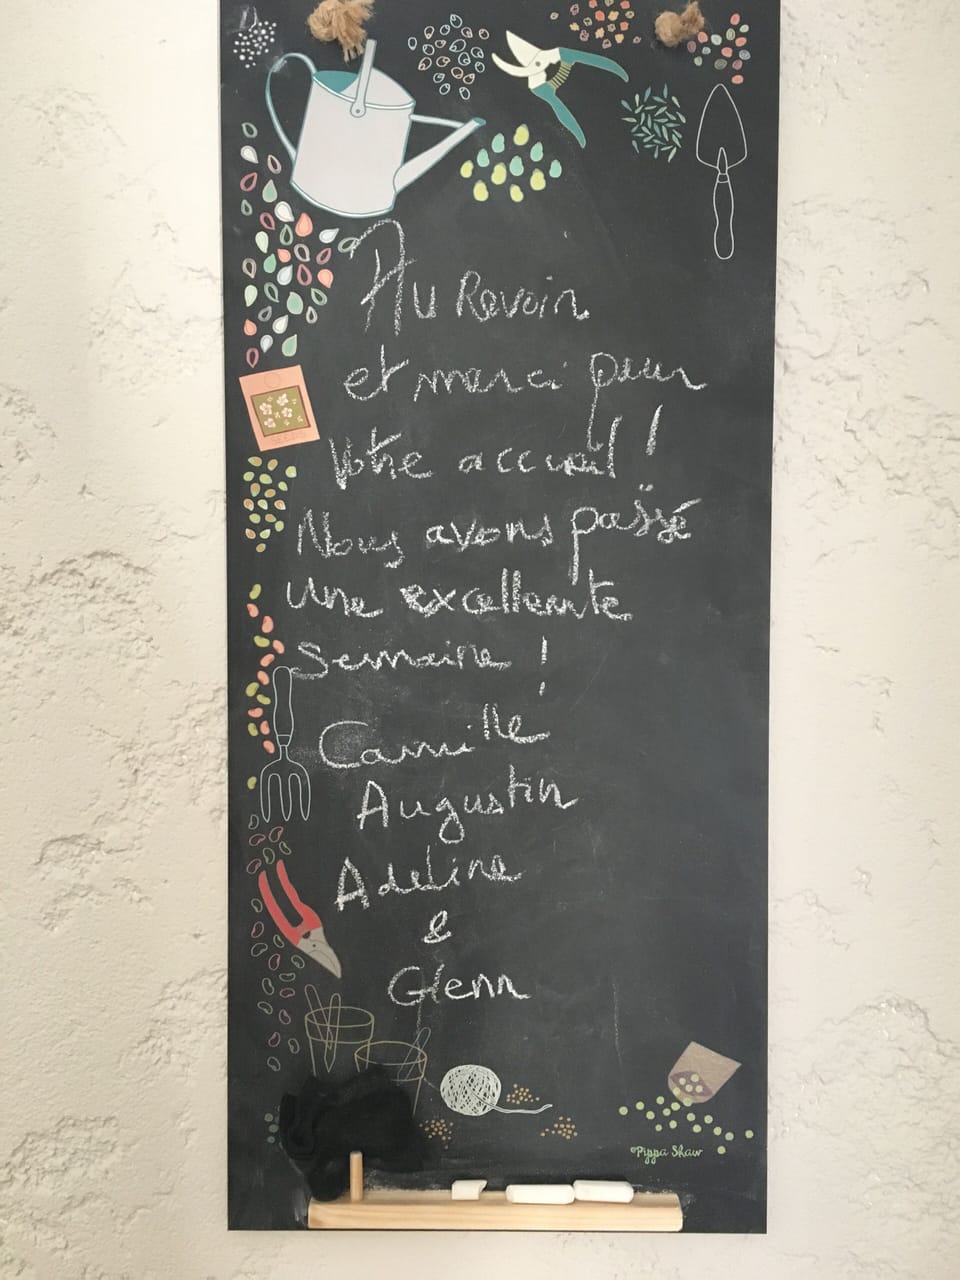 Au Revoir
et merci pour
Votre accueil !
Nous avons passé
une excellente
semaine !
Camille
Augustin
Adeline
&
Glenn
©Pippa Shaw
SEEDS